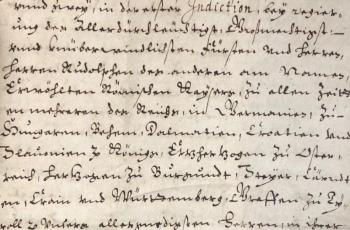 vnnd zwey, in der ersten Indiction, beÿ regier,,
ung des Allerdurchleuchtigst, Großmechtigst,,
vnnd vnüberwindlichsten Fürsten vnd Herren,
Herren Rudolphen des anderen am Namen,
Erwöhlten Römischen Keÿsers, zu allen Zeitt,,
en mehreren des Reichs, in Germanien, zu
Hungaren, Behem, Dalmatien, Croatien vnd
Sclauonien &c Königs, Ertzhertzogen zu Oster,,
reich, Hertzogen zu Burgundt, Steÿer, Kärndt,,
en, Crain vnd Württemberg, Graffen zu Ty,,
roll &c Vnsers allergnedigsten Herren, in ihrer